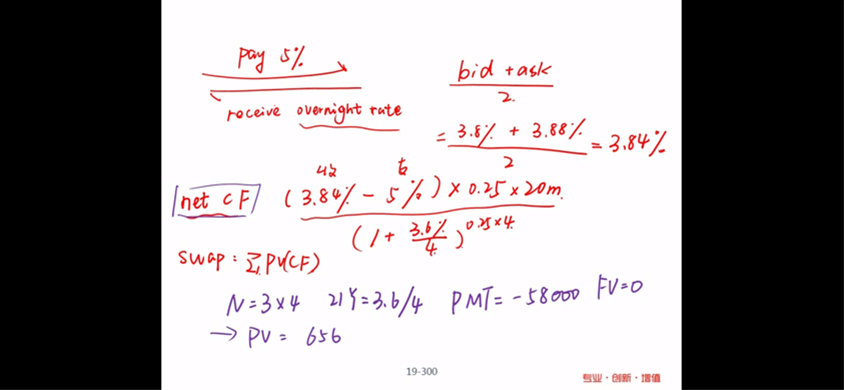 pay 5%
receive overnight rate
bid + ask
2
= 3.8% + 3.88% = 3.84%
2
收 支
net CF (3.84% - 5%) × 0.25 × 20m
(1 + 3.6%/4)^0.25×4
swap: Σ PV(CF)
N = 3×4 21Y = 3.6/4 PMT = -58000 FV=0
→ PV = 656
19-300
专业·创新·增值